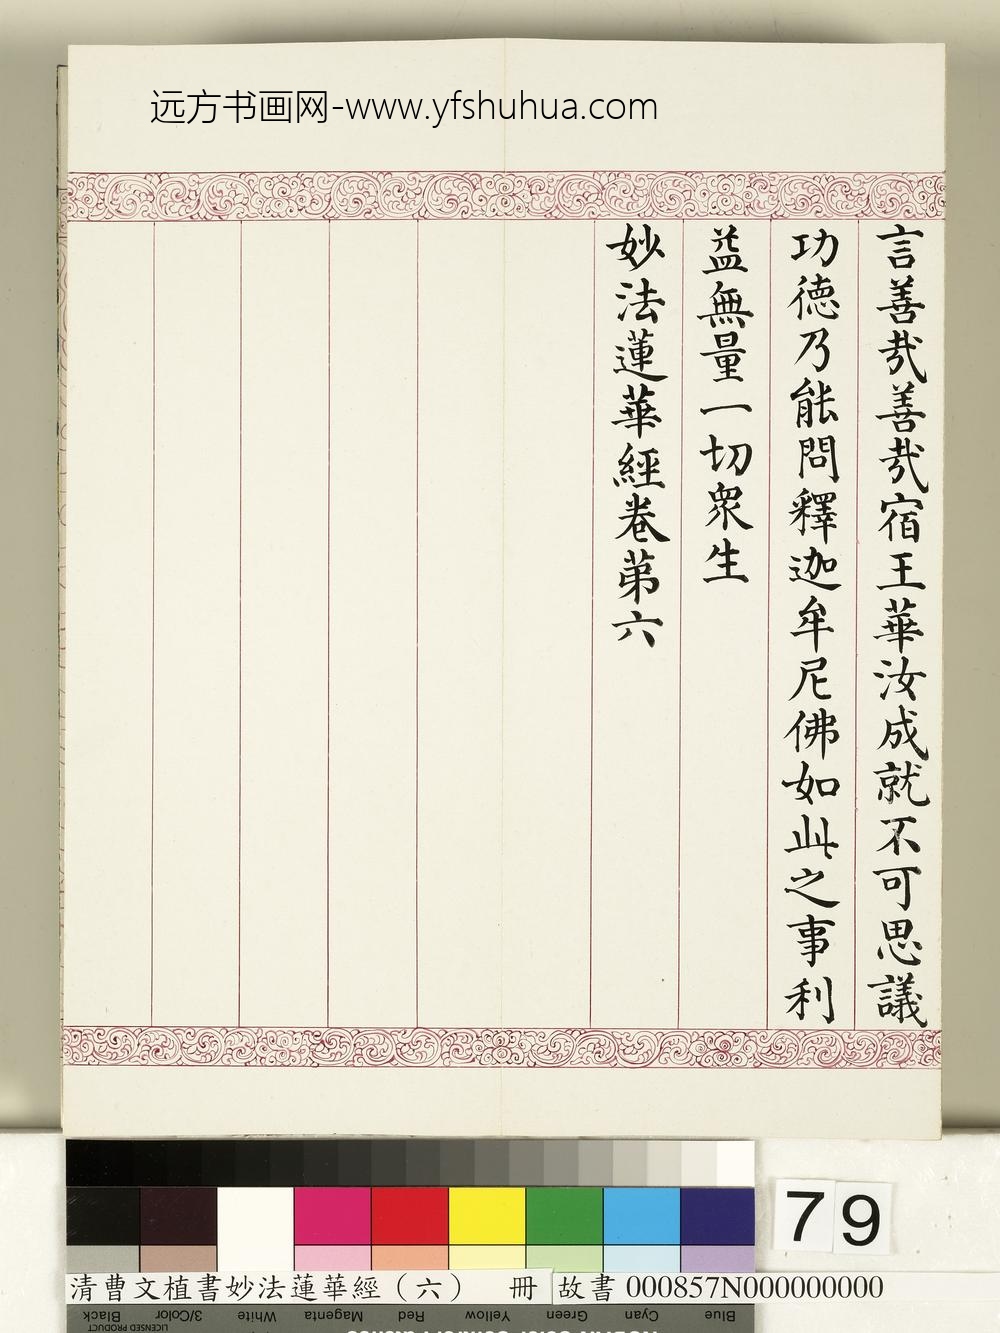 远方书画网-www.yfshuhua.com
言善哉善哉宿王華汝成就不可思議
功德乃能問釋迦牟尼佛如此之事利
益無量一切衆生
妙法蓮華經卷第六
79
清曹文植書妙法蓮華經（六） 冊 故書 000857N000000000
Black 3/Color White Magenta Red Yellow Green Cyan Blue
LICENSED PRODUCT